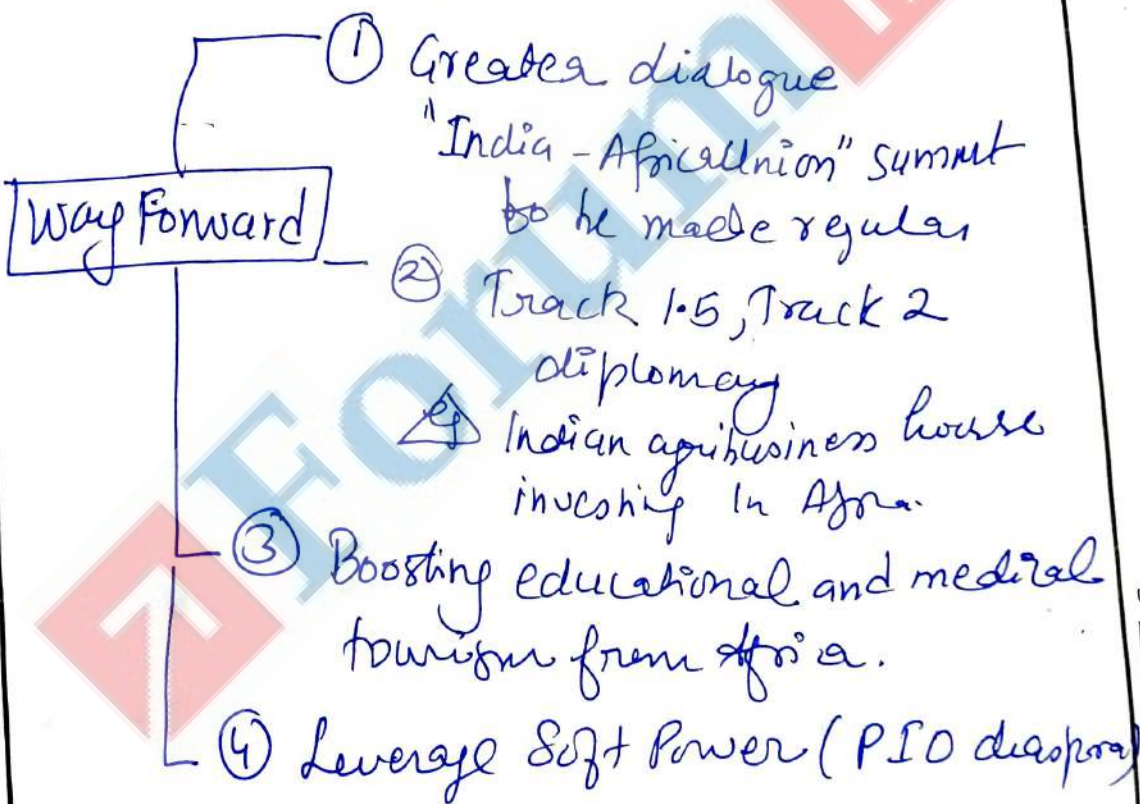 ① Greater dialogue
"India - Africa Union" summit
to be made regular
Way Forward
② Track 1.5, Track 2
diplomacy
eg Indian agribusiness house
investing in Africa.
③ Boosting educational and medical
tourism from Africa.
④ Leverage Soft Power (PIO diaspora)
Forum